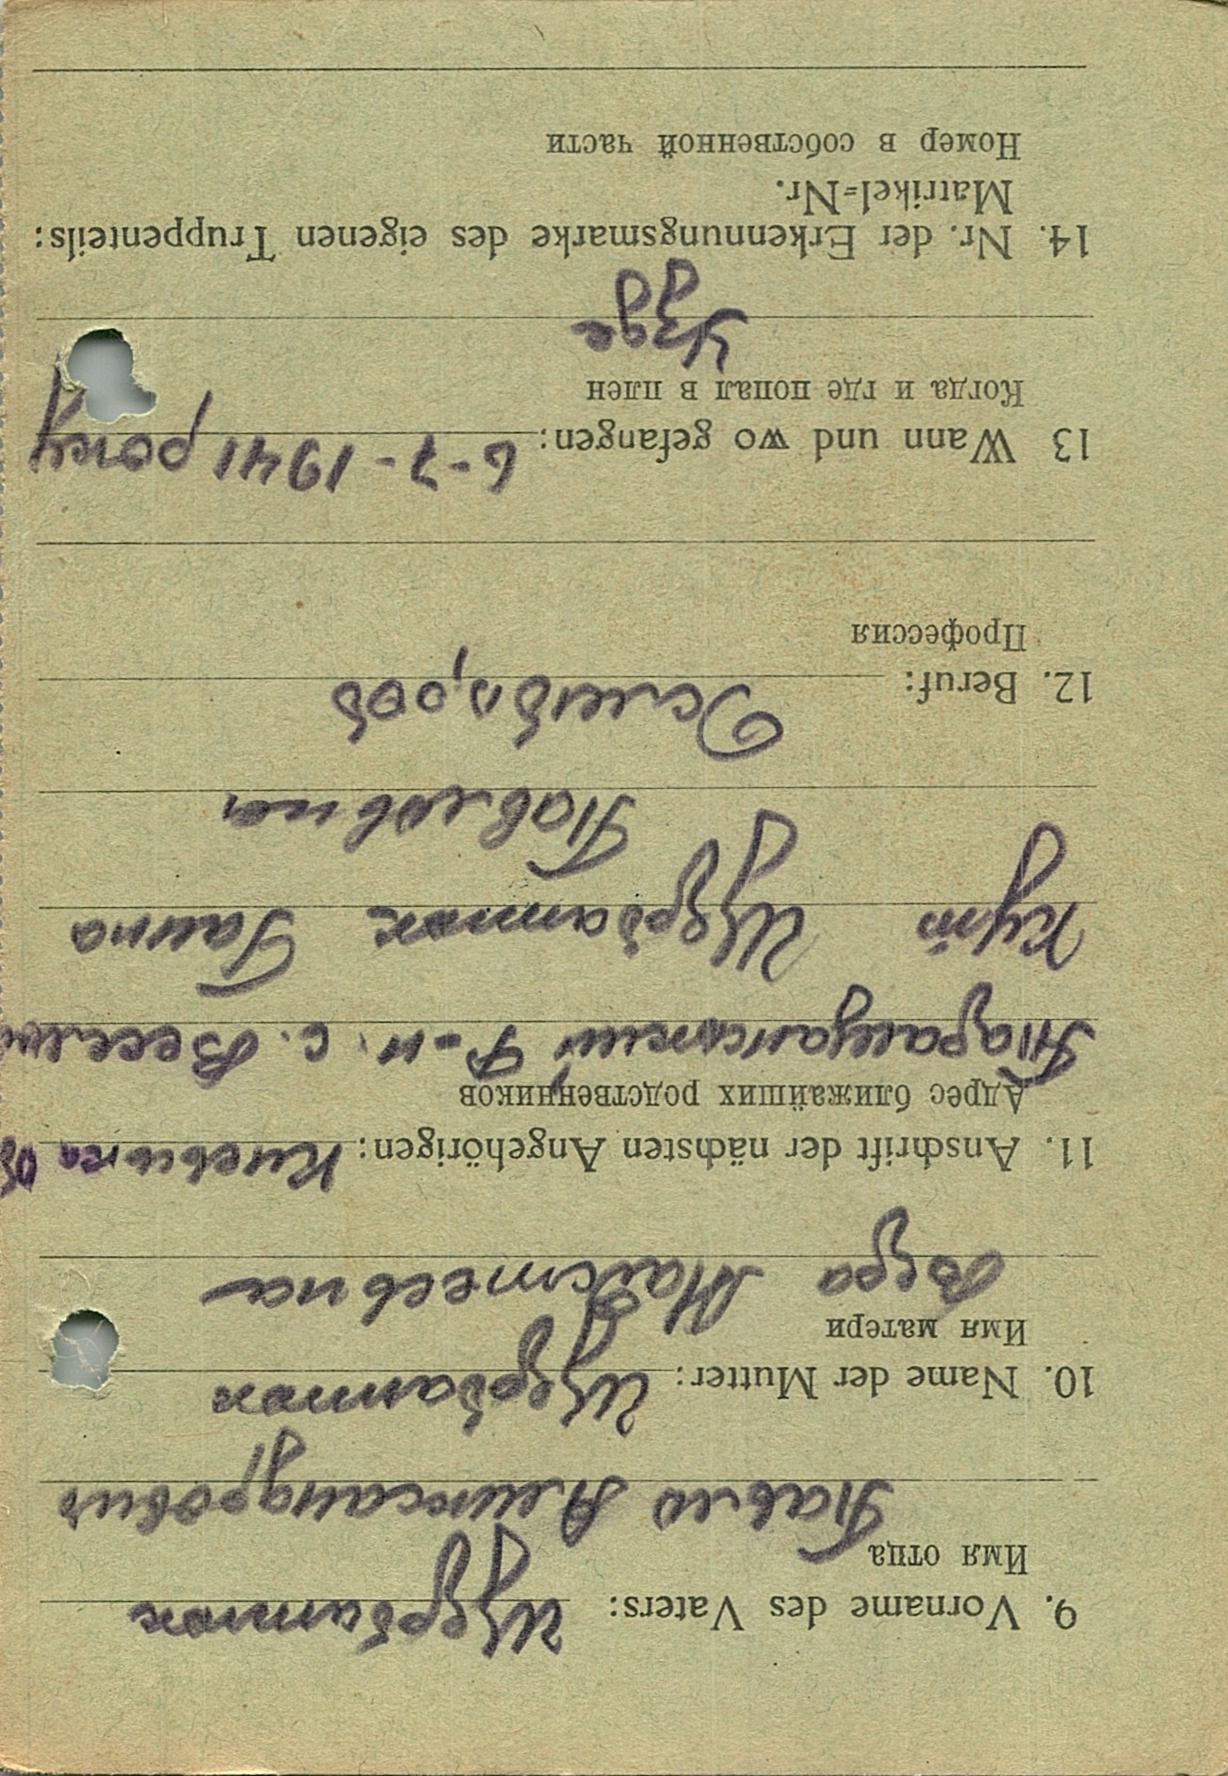 9. Vorname des Vaters: Щербатюк
Имя отца
Павло Аликсандровиг
10. Name der Mutter: Щербатюк
Имя матери
Вера Мадетевна
11. Anschrift der nächsten Angehörigen: Киевська об
Адрес ближайших родственников
Таращанский Р-н. с. Веселий
Кут Щербатюк Ганна
Павловна
12. Beruf:
Профессия
13 Wann und wo gefangen: 6-7-1941 року
Когда и где попал в плен
14. Nr. der Erkennungsmarke des eigenen Truppenteils:
Matrikel=Nr.
Номер в собственной части